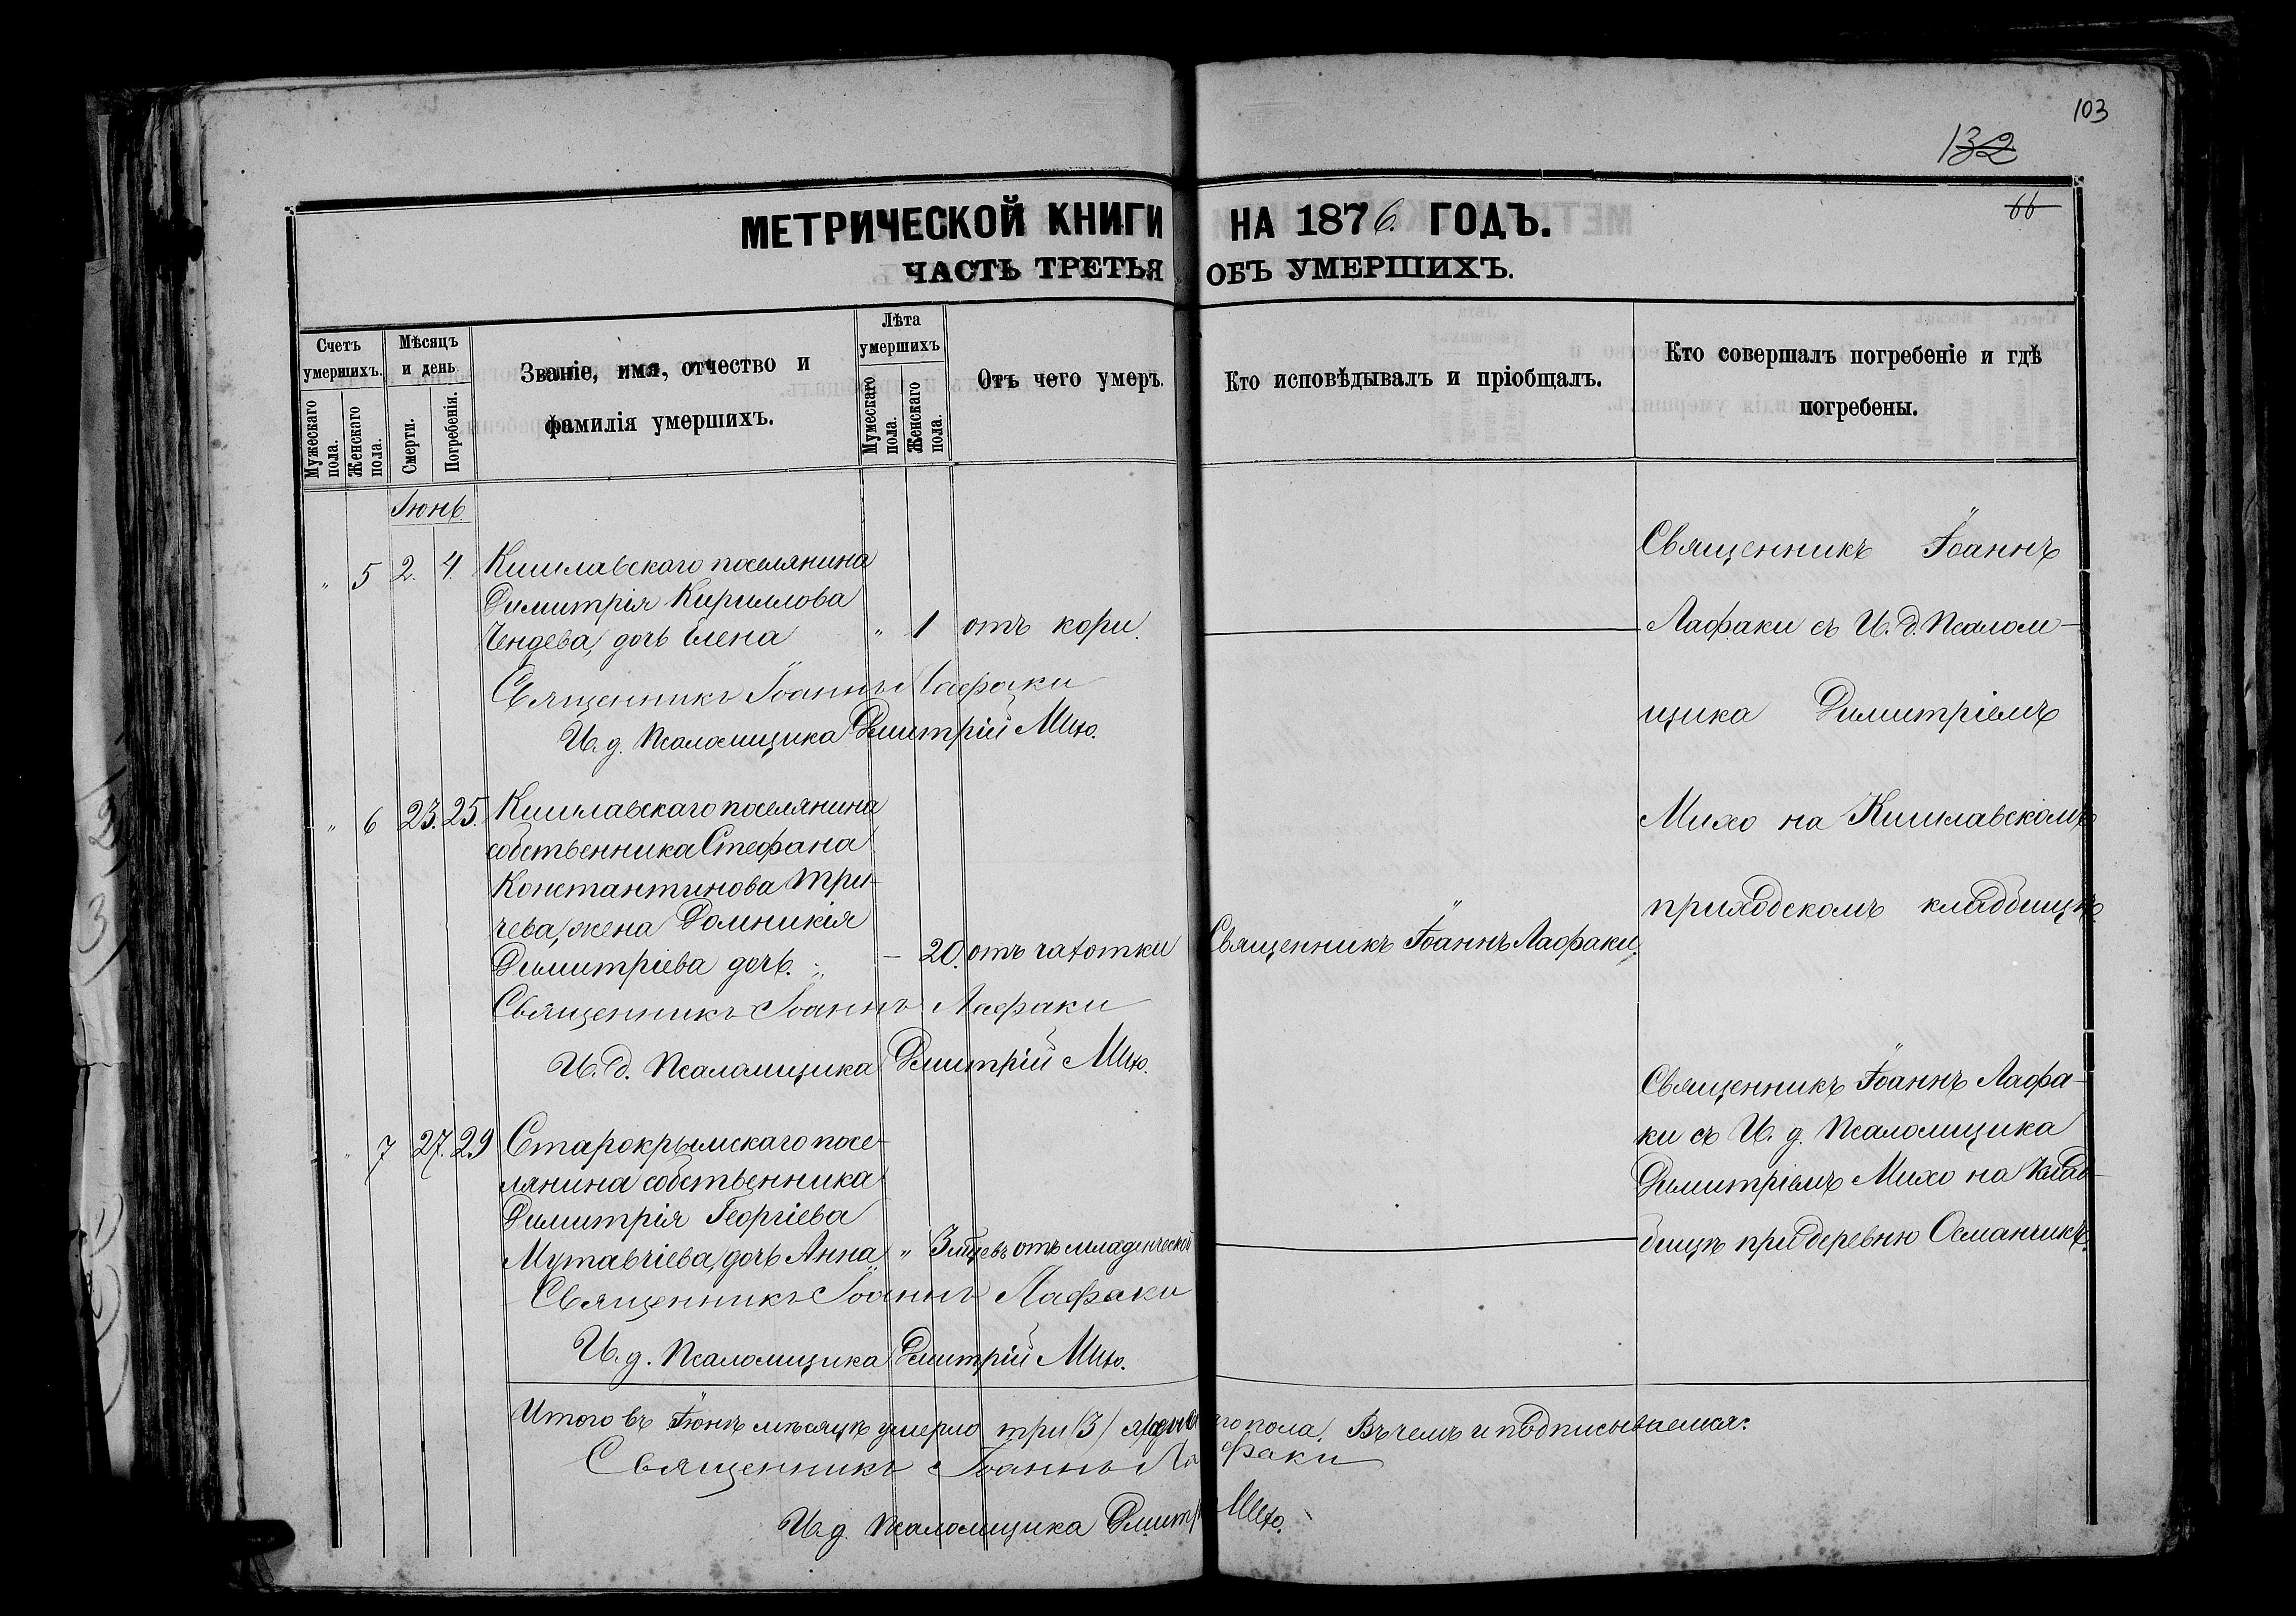 103
132
66
МЕТРИЧЕСКОЙ КНИГИ НА 1876 ГОДЪ.
ЧАСТЬ ТРЕТЬЯ ОБЪ УМЕРШИХЪ.
Счетъ умершихъ.
Мужескаго пола.
Женскаго пола.
Мѣсяцъ и день
Смерти.
Погребенія.
Званіе, имя, отчество и
фамилія умершихъ.
Лѣта умершихъ
Мужескаго пола.
Женскаго пола.
Отъ чего умеръ.
Кто исповѣдывалъ и пріобщалъ.
Кто совершалъ погребеніе и гдѣ
погребены.
Іюнь.
" 5 2. 4. Кишлавскаго поселянина
Димитрія Кириллова
Чендева, дочь Елена " 1 отъ кори.
Священникъ Іоаннъ Лафаки
И. д. Псаломщика Дмитрій Михо.
Священникъ Іоаннъ
Лафаки съ И. д. Псалом-
щика Димитріемъ
Михо на Кишлавскомъ
приходскомъ кладбищѣ.
" 6 23. 25. Кишлавскаго поселянина
собственника Стефана
Константинова Три-
чева, жена Домникія
Димитріева дочь. — 20. отъ чахотки Священникъ Іоаннъ Лафаки.
Священникъ Іоаннъ Лафаки
И. д. Псаломщика Дмитрій Михо.
" 7 27. 29 Старокрымскаго посе-
лянина собственника
Димитрія Георгіева
Мутавчіева, дочь Анна " 3 мѣцевъ отъ младенческой
Священникъ Іоаннъ Лафаки
И. д. Псаломщика Дмитрій Михо.
Священникъ Іоаннъ Лафа-
ки съ И. д. Псаломщика
Димитріемъ Михо на клад-
бищѣ при деревню Османчикъ.
Итого въ Іюнѣ мѣсяцѣ умерло три (3) женскаго пола. Въ чемъ и подписываемся:
Священникъ Іоаннъ Лафаки
И. д. Псаломщика Дмитр Михо.